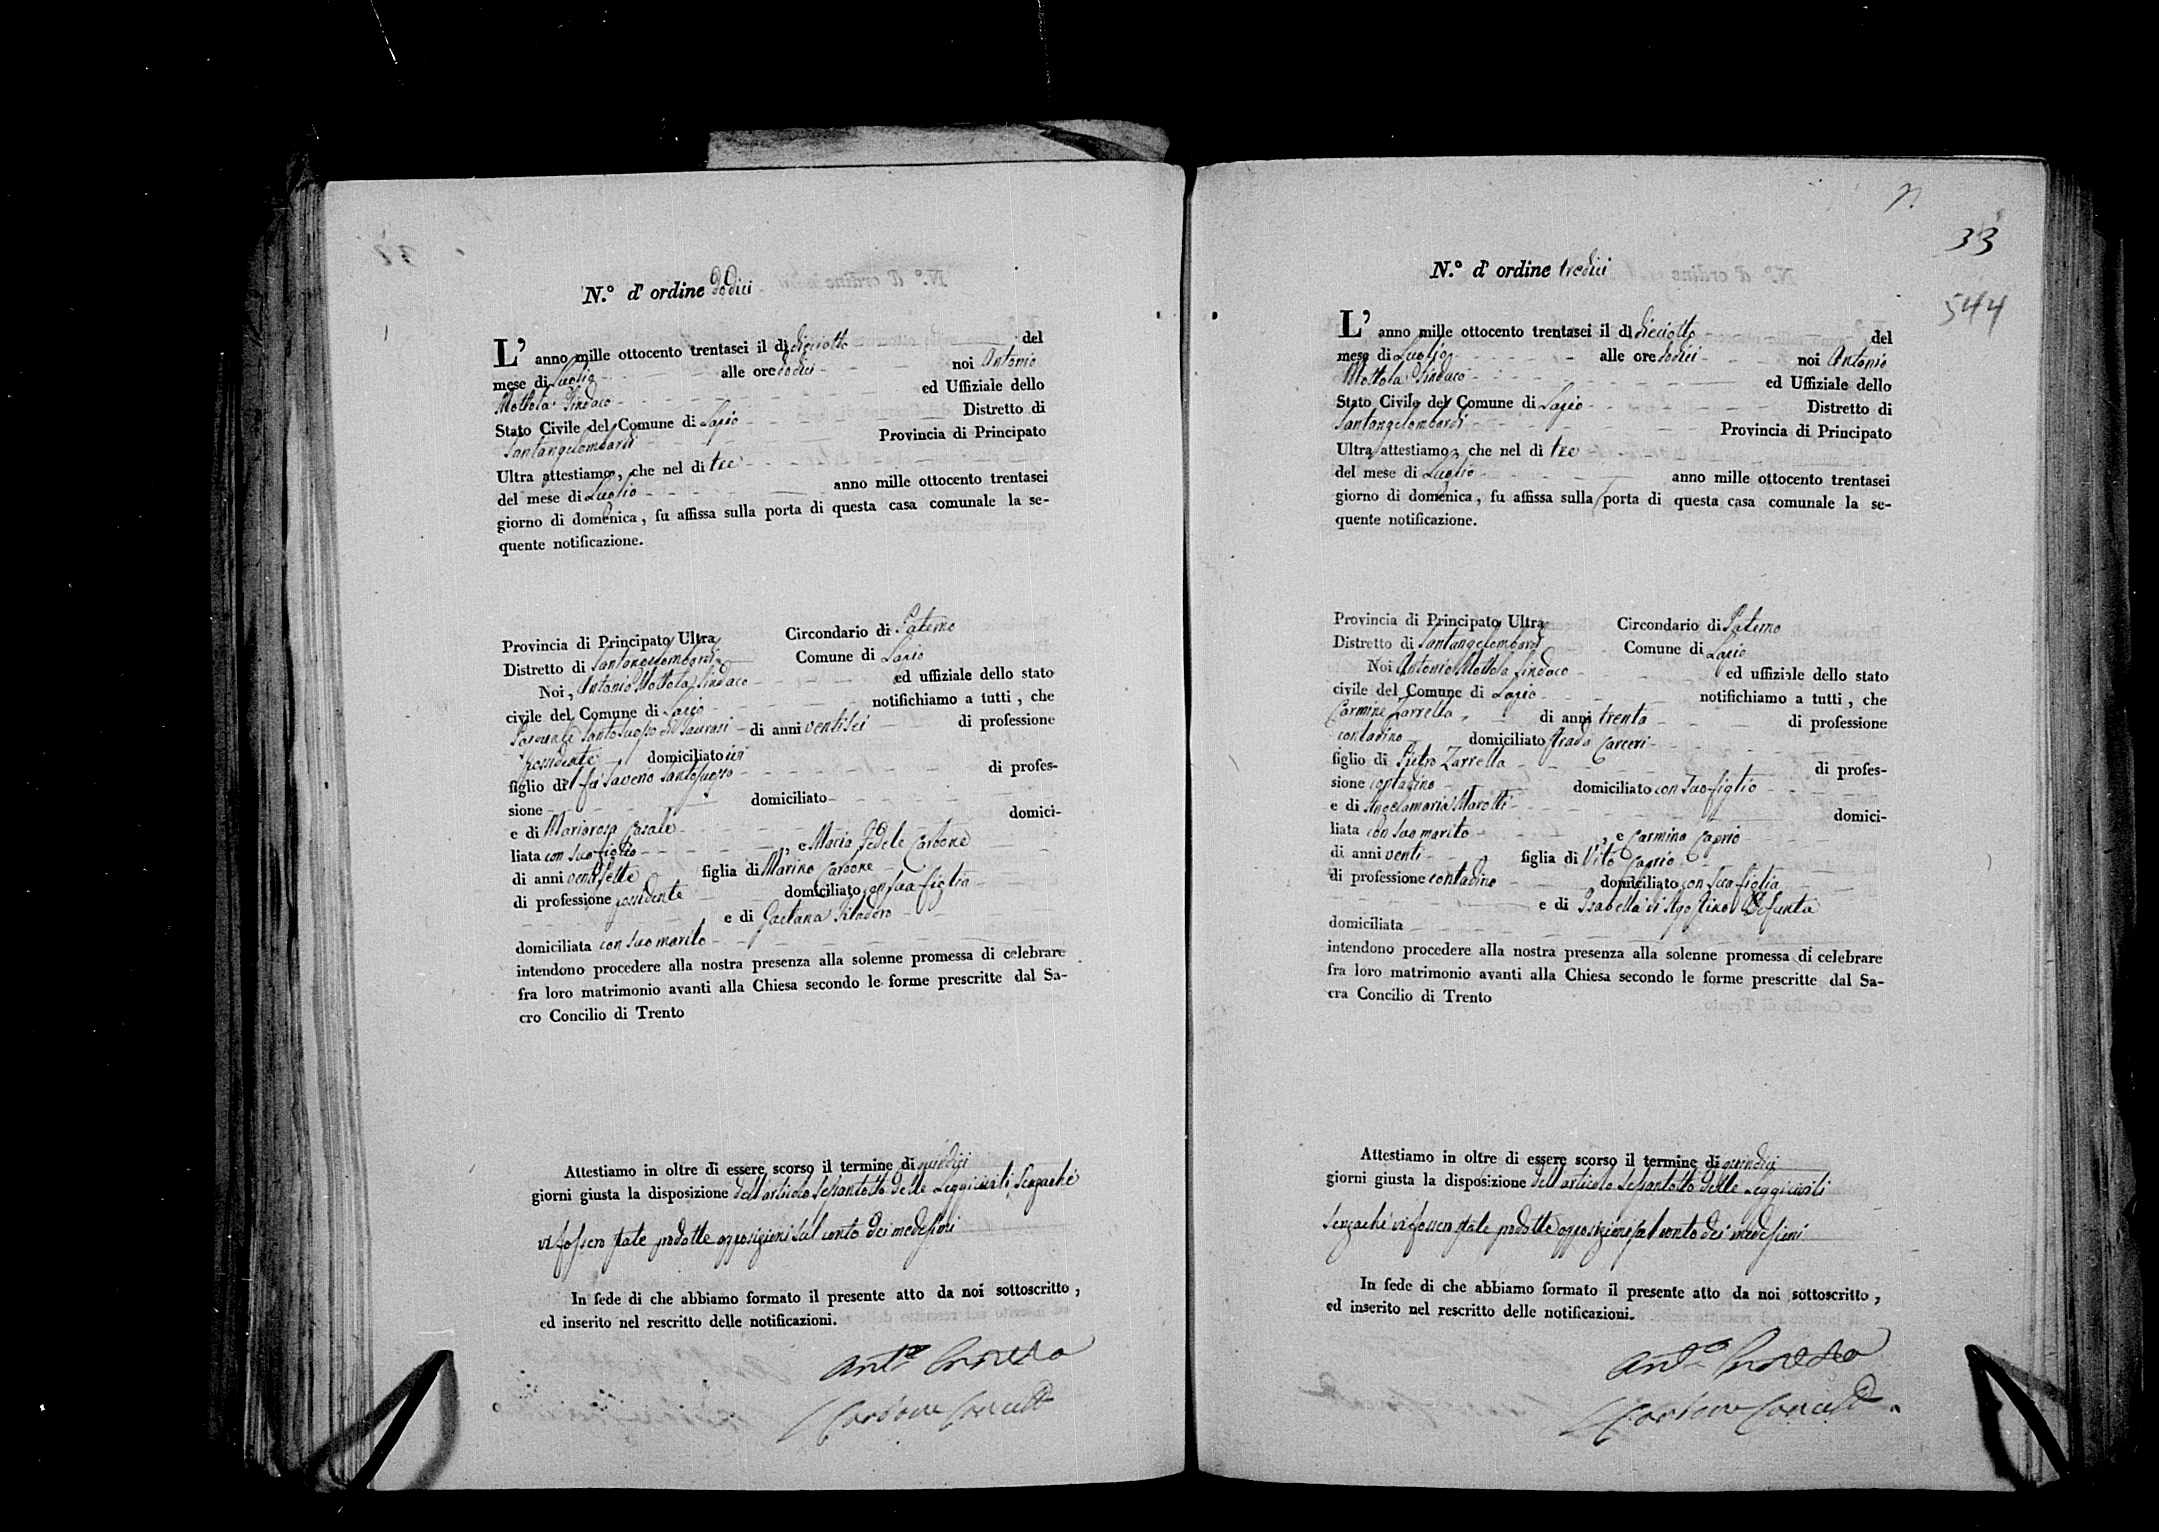 N.º d' ordine dodici
L' anno mille ottocento trentasei il dì dieciotto del
mese di Luglio alle ore dodici noi Antonio
Mottola Sindaco ed Uffiziale dello
Stato Civile del Comune di Lapio Distretto di
Santangelombardi Provincia di Principato
Ultra attestiamo, che nel dì tre
del mese di Luglio anno mille ottocento trentasei
giorno di domenica, fu affissa sulla porta di questa casa comunale la se-
quente notificazione.
Provincia di Principato Ultra Circondario di Paterno
Distretto di Santangelombardi Comune di Lapio
Noi, Antonio Mottola Sindaco ed uffiziale dello stato
civile del Comune di Lapio notifichiamo a tutti, che
Pasquale Santosuosso di Taurasi di anni ventisei di professione
Possidente domiciliato ivi
figlio di fù Saverio Santosuosso di profes-
sione domiciliato
e di Mariarosa Casale domici-
liata con suo figlio, e Maria Fedele Carbone
di anni ventisette figlia di Marino Carbone
di professione possidente domiciliato con sua figlia
e di Gaetana
domiciliata con suo marito
intendono procedere alla nostra presenza alla solenne promessa di celebrare
fra loro matrimonio avanti alla Chiesa secondo le forme prescritte dal Sa-
cro Concilio di Trento
Attestiamo in oltre di essere scorso il termine di quindici
giorni giusta la disposizione dell'articolo sessantotto delle Leggi civili, senzaché
vi fossero state prodotte opposizioni sul conto dei medesimi
In fede di che abbiamo formato il presente atto da noi sottoscritto,
ed inserito nel rescritto delle notificazioni.
33
544
N.º d' ordine tredici
L' anno mille ottocento trentasei il dì dieciotto del
mese di Luglio alle ore dodici noi Antonio
Mottola Sindaco ed Uffiziale dello
Stato Civile del Comune di Lapio Distretto di
Santangelombardi Provincia di Principato
Ultra attestiamo, che nel dì tre
del mese di Luglio anno mille ottocento trentasei
giorno di domenica, fu affissa sulla porta di questa casa comunale la se-
quente notificazione.
Provincia di Principato Ultra Circondario di Paterno
Distretto di Santangelombardi Comune di Lapio
Noi Antonio Mottola Sindaco ed uffiziale dello stato
civile del Comune di Lapio notifichiamo a tutti, che
Carmine Zarrella, di anni trenta di professione
contadino domiciliato strada Carceri
figlio di Pietro Zarrella di profes-
sione contadino domiciliato con suo figlio
e di Angelamaria Marotti domici-
liata con suo marito, e Carmina Caprio
di anni venti, figlia di Vito Caprio
di professione contadino domiciliato con sua figlia
e di Isabella di Agostino Defunta
domiciliata
intendono procedere alla nostra presenza alla solenne promessa di celebrare
fra loro matrimonio avanti alla Chiesa secondo le forme prescritte dal Sa-
cra Concilio di Trento
Attestiamo in oltre di essere scorso il termine di quindici
giorni giusta la disposizione dell'articolo sessantotto delle Leggi civili
senzaché vi fossero state prodotte opposizioni sul conto dei medesimi
In fede di che abbiamo formato il presente atto da noi sottoscritto,
ed inserito nel rescritto delle notificazioni.